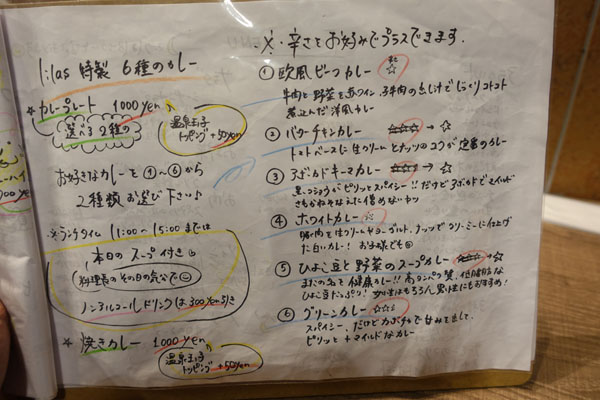 l:las 特製 6種のカレー
★カレープレート 1000yen
選べる2種の
温泉玉子
トッピング +50yen
お好きなカレーを①〜⑥から
2種類お選び下さい♪
※ランチタイム 11:00〜15:00までは
本日のスープ付き
(料理長のその日の気分で)
ノンアルコールドリンクは300yen引き
★焼きカレー 1000yen
温泉玉子
トッピング +50yen
※・辛さをお好みでプラスできます.
①欧風ビーフカレー ☆
牛肉と野菜を赤ワイン、子牛のだし汁でじっくりコトコト
煮込んだ洋風カレー
②バターチキンカレー → ☆
トマトベースに生クリームとナッツのコクが定番のカレー
③アボカドキーマカレー → ☆
黒コショウがピリッとスパイシー!!だけどアボカドでマイルド
④ホワイトカレー ☆
豚肉を生クリーム、ヨーグルト、ナッツでクリーミーに仕上げ
た白いカレー! お子様でも
⑤ひよこ豆と野菜のスープカレー → ☆
またの名を健康カレー!! 高タンパク質、低脂肪な
ひよこ豆たっぷり! 女性はもちろん男性にもおすすめ!
⑥グリーンカレー
スパイシー、だけどカボチャで甘みを出して、
ピリッと+マイルドなカレー